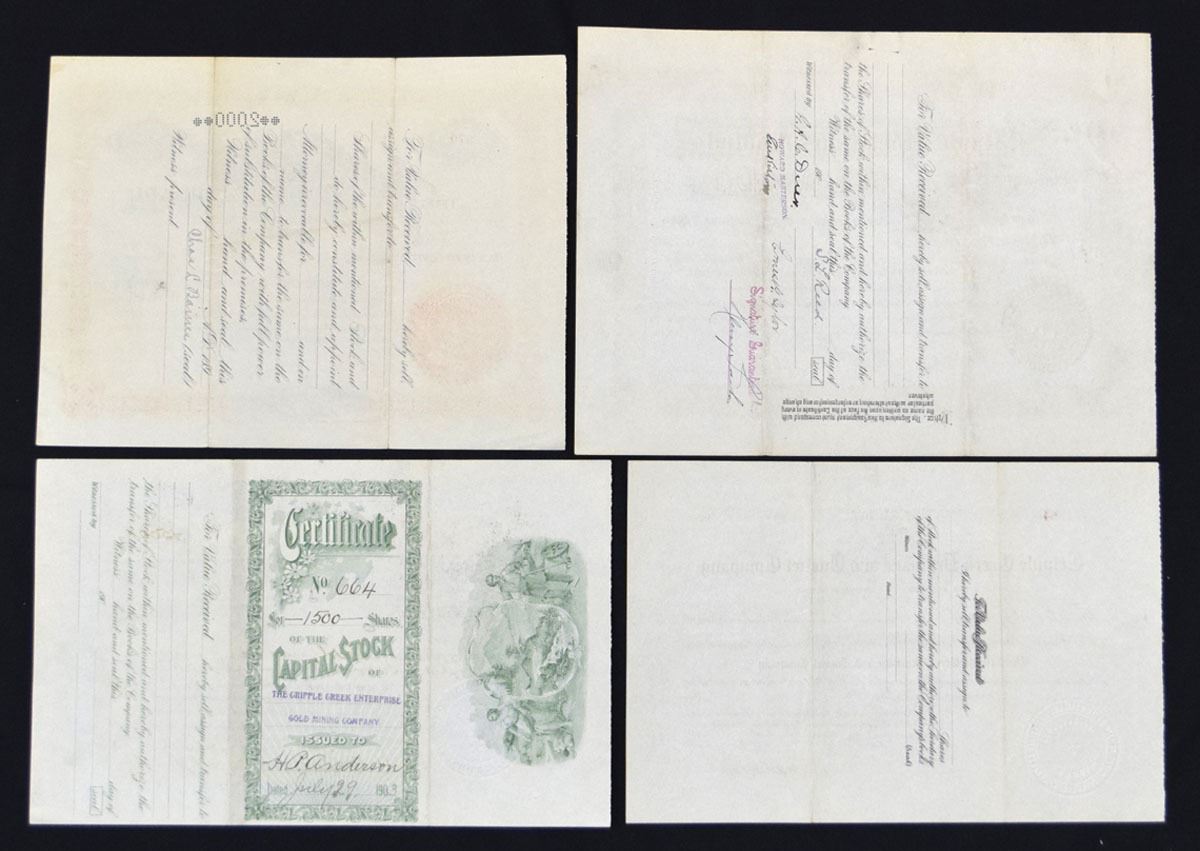 **2000**
For Value Received, hereby sell,
assign and transfer to
Shares of the within mentioned Stock and
do hereby constitute and appoint
Attorney irrevocable for and on
name to transfer the same on the
Books of the Company with full power
of substitution in the premises.
Witness hand and seal this
day of A.D. 190
(seal)
Witness present
For Value Received, hereby sell, assign and transfer to
the Shares of Stock within mentioned and hereby authorize the
transfer of the same on the Books of the Company
Witness hand and seal this day of
S L Reed seal
Witnessed by
HOWARD MASTERSON
Signature Guaranteed
Notice. The Signature to this Assignment must correspond with
the name as written upon the face of the Certificate in every
particular without alteration or enlargement or any change
whatever
For Value Received hereby sell, assign and transfer to
the Shares of Stock within mentioned and hereby authorize the
transfer of the same on the Books of the Company
Witness hand and seal this day of
seal
Witnessed by
Certificate
No. 664
For —1500— Shares
OF THE
CAPITAL STOCK
OF
THE CRIPPLE CREEK ENTERPRISE
GOLD MINING COMPANY
ISSUED TO
H.P. Anderson
Dated July 29 1903
For Value Received
I hereby sell transfer and assign to
Shares
of Stock within mentioned and hereby authorize the Secretary
of the Company to transfer the same on the Company books
Witness (Seal)
Dated